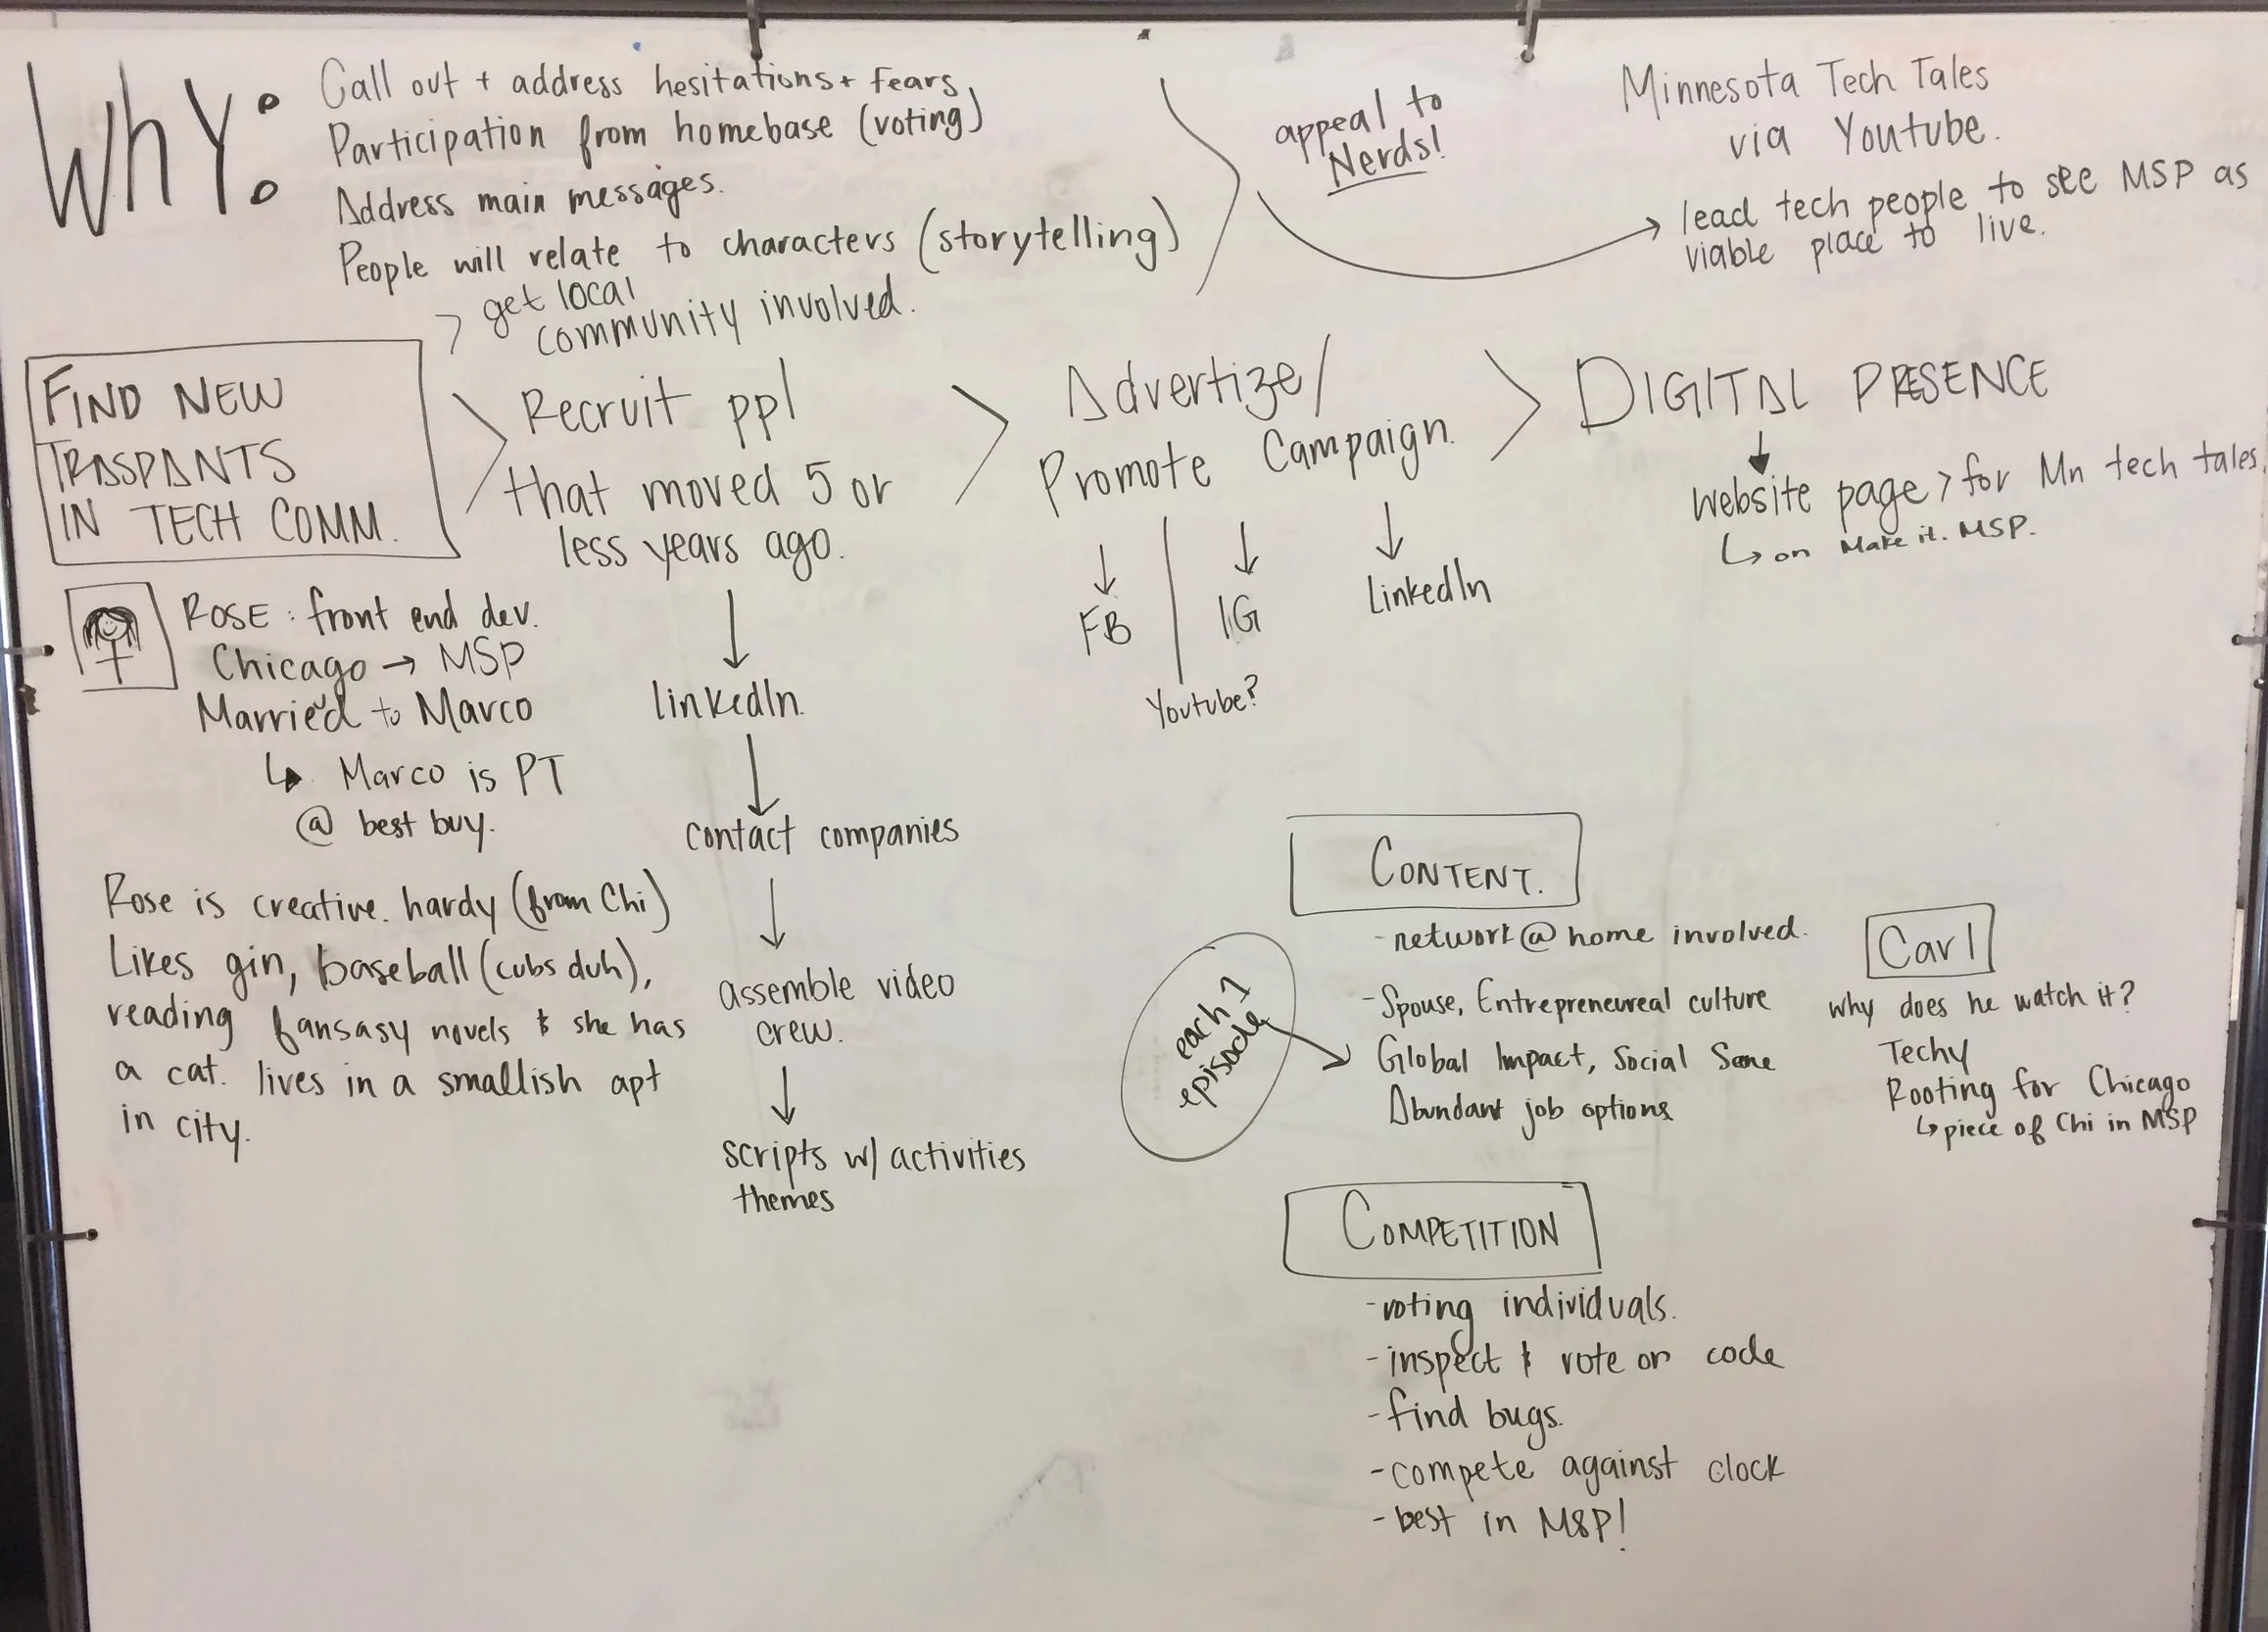 Why:
Call out + address hesitations + fears
Participation from homebase (voting)
Address main messages.
People will relate to characters (storytelling)
> get local
community involved.
appeal to
Nerds!
Minnesota Tech Tales
via Youtube.
→ lead tech people to see MSP as
viable place to live.
FIND NEW
TRASPANTS
IN TECH COMM.
ROSE: front end dev.
Chicago → MSP
Married to Marco
↳ Marco is PT
@ best buy.
Rose is creative. hardy (from Chi)
Likes gin, baseball (cubs duh),
reading fansasy novels & she has
a cat. lives in a smallish apt
in city.
> Recruit ppl
that moved 5 or
less years ago.
↓
linkedIn.
↓
contact companies
↓
assemble video
crew.
↓
scripts w/ activities
themes
> Advertize/
Promote Campaign.
↓ FB
↓ IG
↓ LinkedIn
Youtube?
> DIGITAL PRESENCE
↓
website page > for Mn tech tales.
↳ on Make it. MSP.
CONTENT.
- network @ home involved.
- Spouse, Entrepreneureal culture
Global Impact, Social Scene
Abundant job options
each 1
episode →
Carl
why does he watch it?
Techy
Rooting for Chicago
↳ piece of Chi in MSP
COMPETITION
- voting individuals.
- inspect & vote on code
- find bugs.
- compete against clock
- best in MSP!